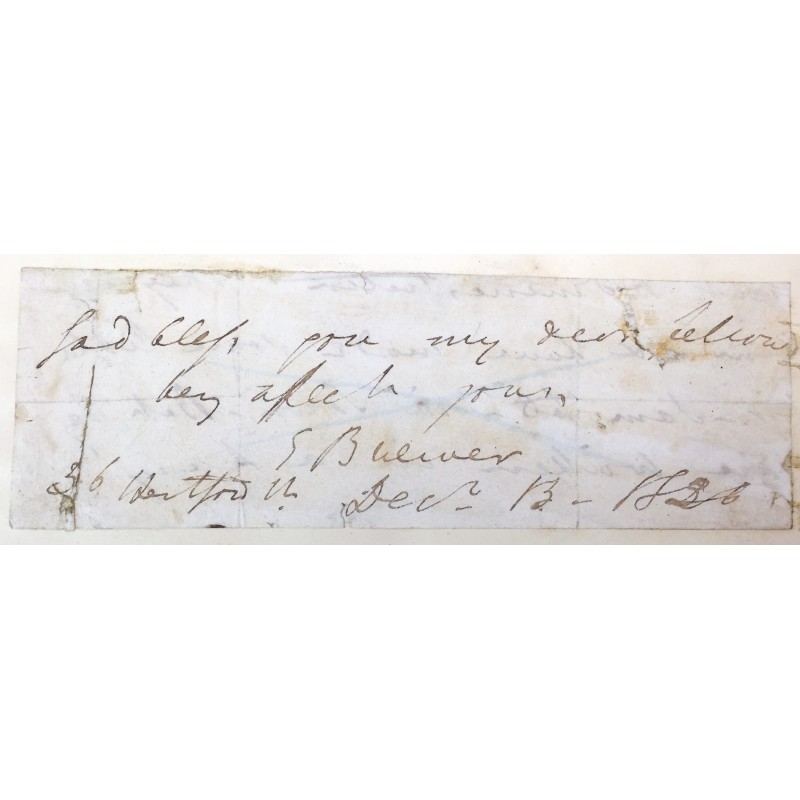 God bless you my dear fellow
very affectly yours.
E Bulwer
36 Hertford St. Decr. 13 - 1836